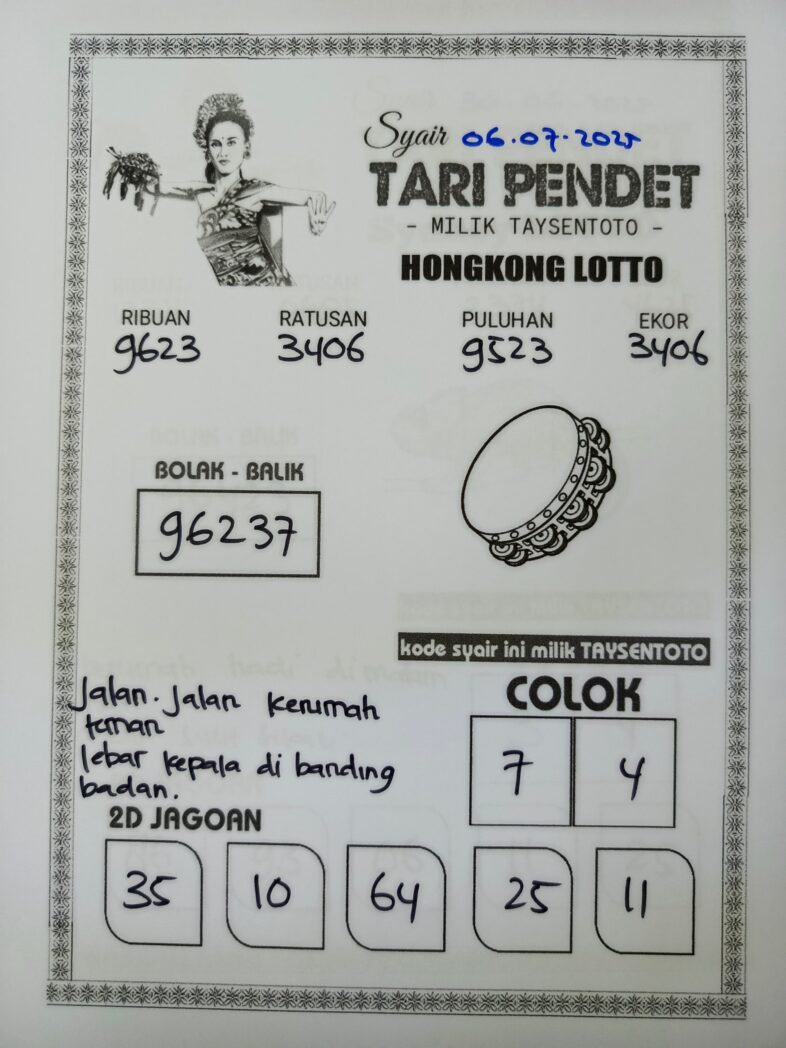 Syair 06.07.2025
TARI PENDET
- MILIK TAYSENTOTO -
HONGKONG LOTTO
RIBUAN RATUSAN PULUHAN EKOR
9623 3406 9523 3406
BOLAK - BALIK
96237
kode syair ini milik TAYSENTOTO
Jalan. Jalan kerumah
teman
lebar kepala di banding
badan.
COLOK
7 4
2D JAGOAN
35 10 64 25 11